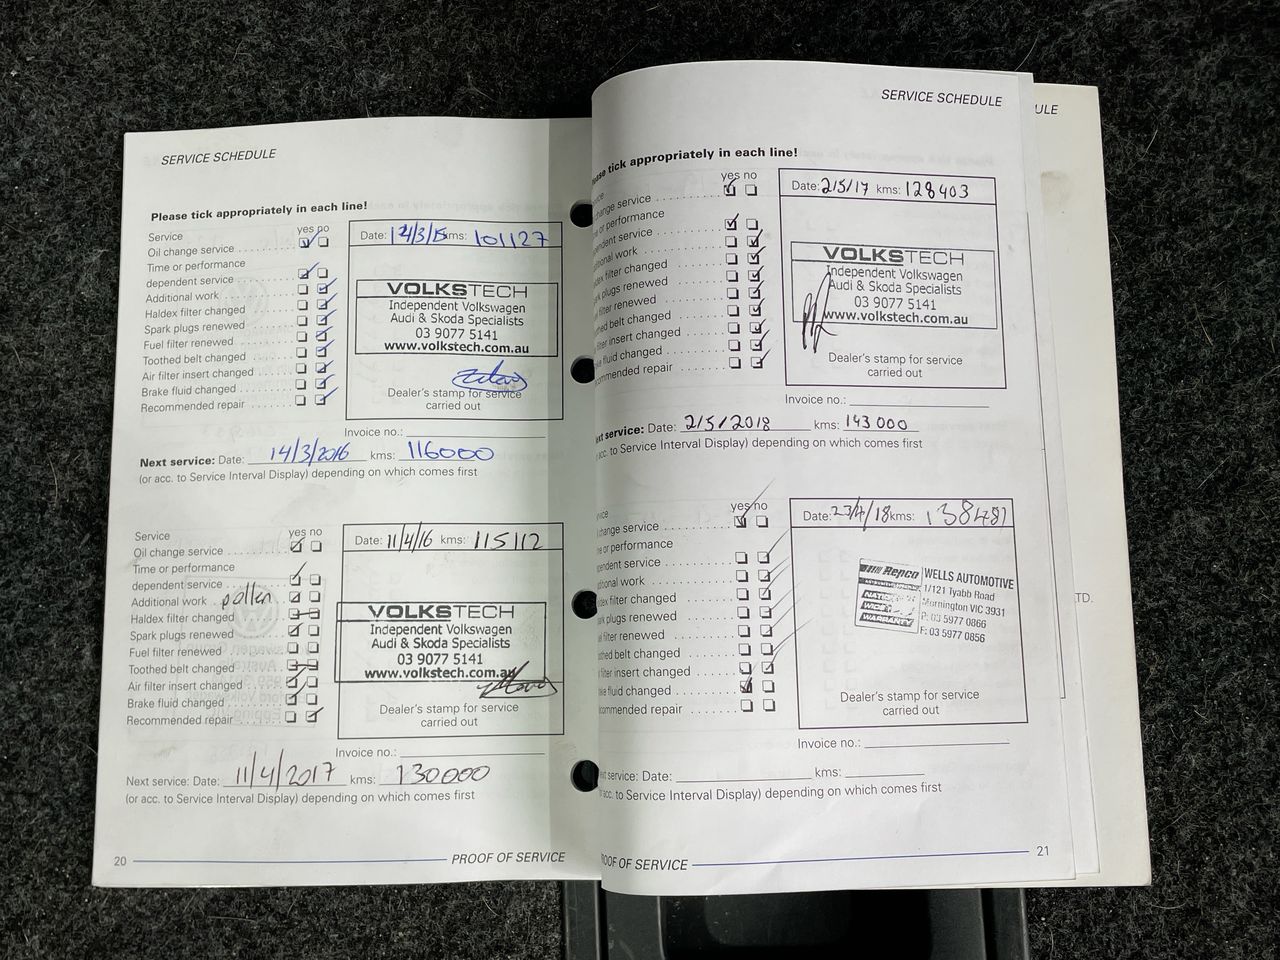 SERVICE SCHEDULE
Please tick appropriately in each line!
Service yes no
Oil change service
Time or performance
dependent service
Additional work
Haldex filter changed
Spark plugs renewed
Fuel filter renewed
Toothed belt changed
Air filter insert changed
Brake fluid changed
Recommended repair
Date: 14/3/15 kms: 101127
VOLKSTECH
Independent Volkswagen
Audi & Skoda Specialists
03 9077 5141
www.volkstech.com.au
Dealer's stamp for service
carried out
Invoice no.:
Next service: Date: 14/3/2016 kms: 116000
(or acc. to Service Interval Display) depending on which comes first
Service yes no
Oil change service
Time or performance
dependent service
Additional work pollen
Haldex filter changed
Spark plugs renewed
Fuel filter renewed
Toothed belt changed
Air filter insert changed
Brake fluid changed
Recommended repair
Date: 11/4/16 kms: 115112
VOLKSTECH
Independent Volkswagen
Audi & Skoda Specialists
03 9077 5141
www.volkstech.com.au
Dealer's stamp for service
carried out
Invoice no.:
Next service: Date: 11/4/2017 kms: 130000
(or acc. to Service Interval Display) depending on which comes first
20 PROOF OF SERVICE
SERVICE SCHEDULE
tick appropriately in each line!
yes no
change service
or performance
service
work
filter changed
plugs renewed
filter renewed
belt changed
insert changed
fluid changed
repair
Date: 2/5/17 kms: 128403
VOLKSTECH
Independent Volkswagen
Audi & Skoda Specialists
03 9077 5141
www.volkstech.com.au
Dealer's stamp for service
carried out
Invoice no.:
service: Date: 2/5/2018 kms: 143000
acc. to Service Interval Display) depending on which comes first
yes no
change service
or performance
service
work
filter changed
plugs renewed
filter renewed
belt changed
filter insert changed
fluid changed
repair
Date: 23/4/18 kms: 138481
Repco
NATIONWIDE
WARRANTY
WELLS AUTOMOTIVE
1/121 Tyabb Road
Mornington VIC 3931
P: 03 5977 0866
F: 03 5977 0856
Dealer's stamp for service
carried out
Invoice no.:
service: Date: kms:
acc. to Service Interval Display) depending on which comes first
OF SERVICE 21
ULE
TD.